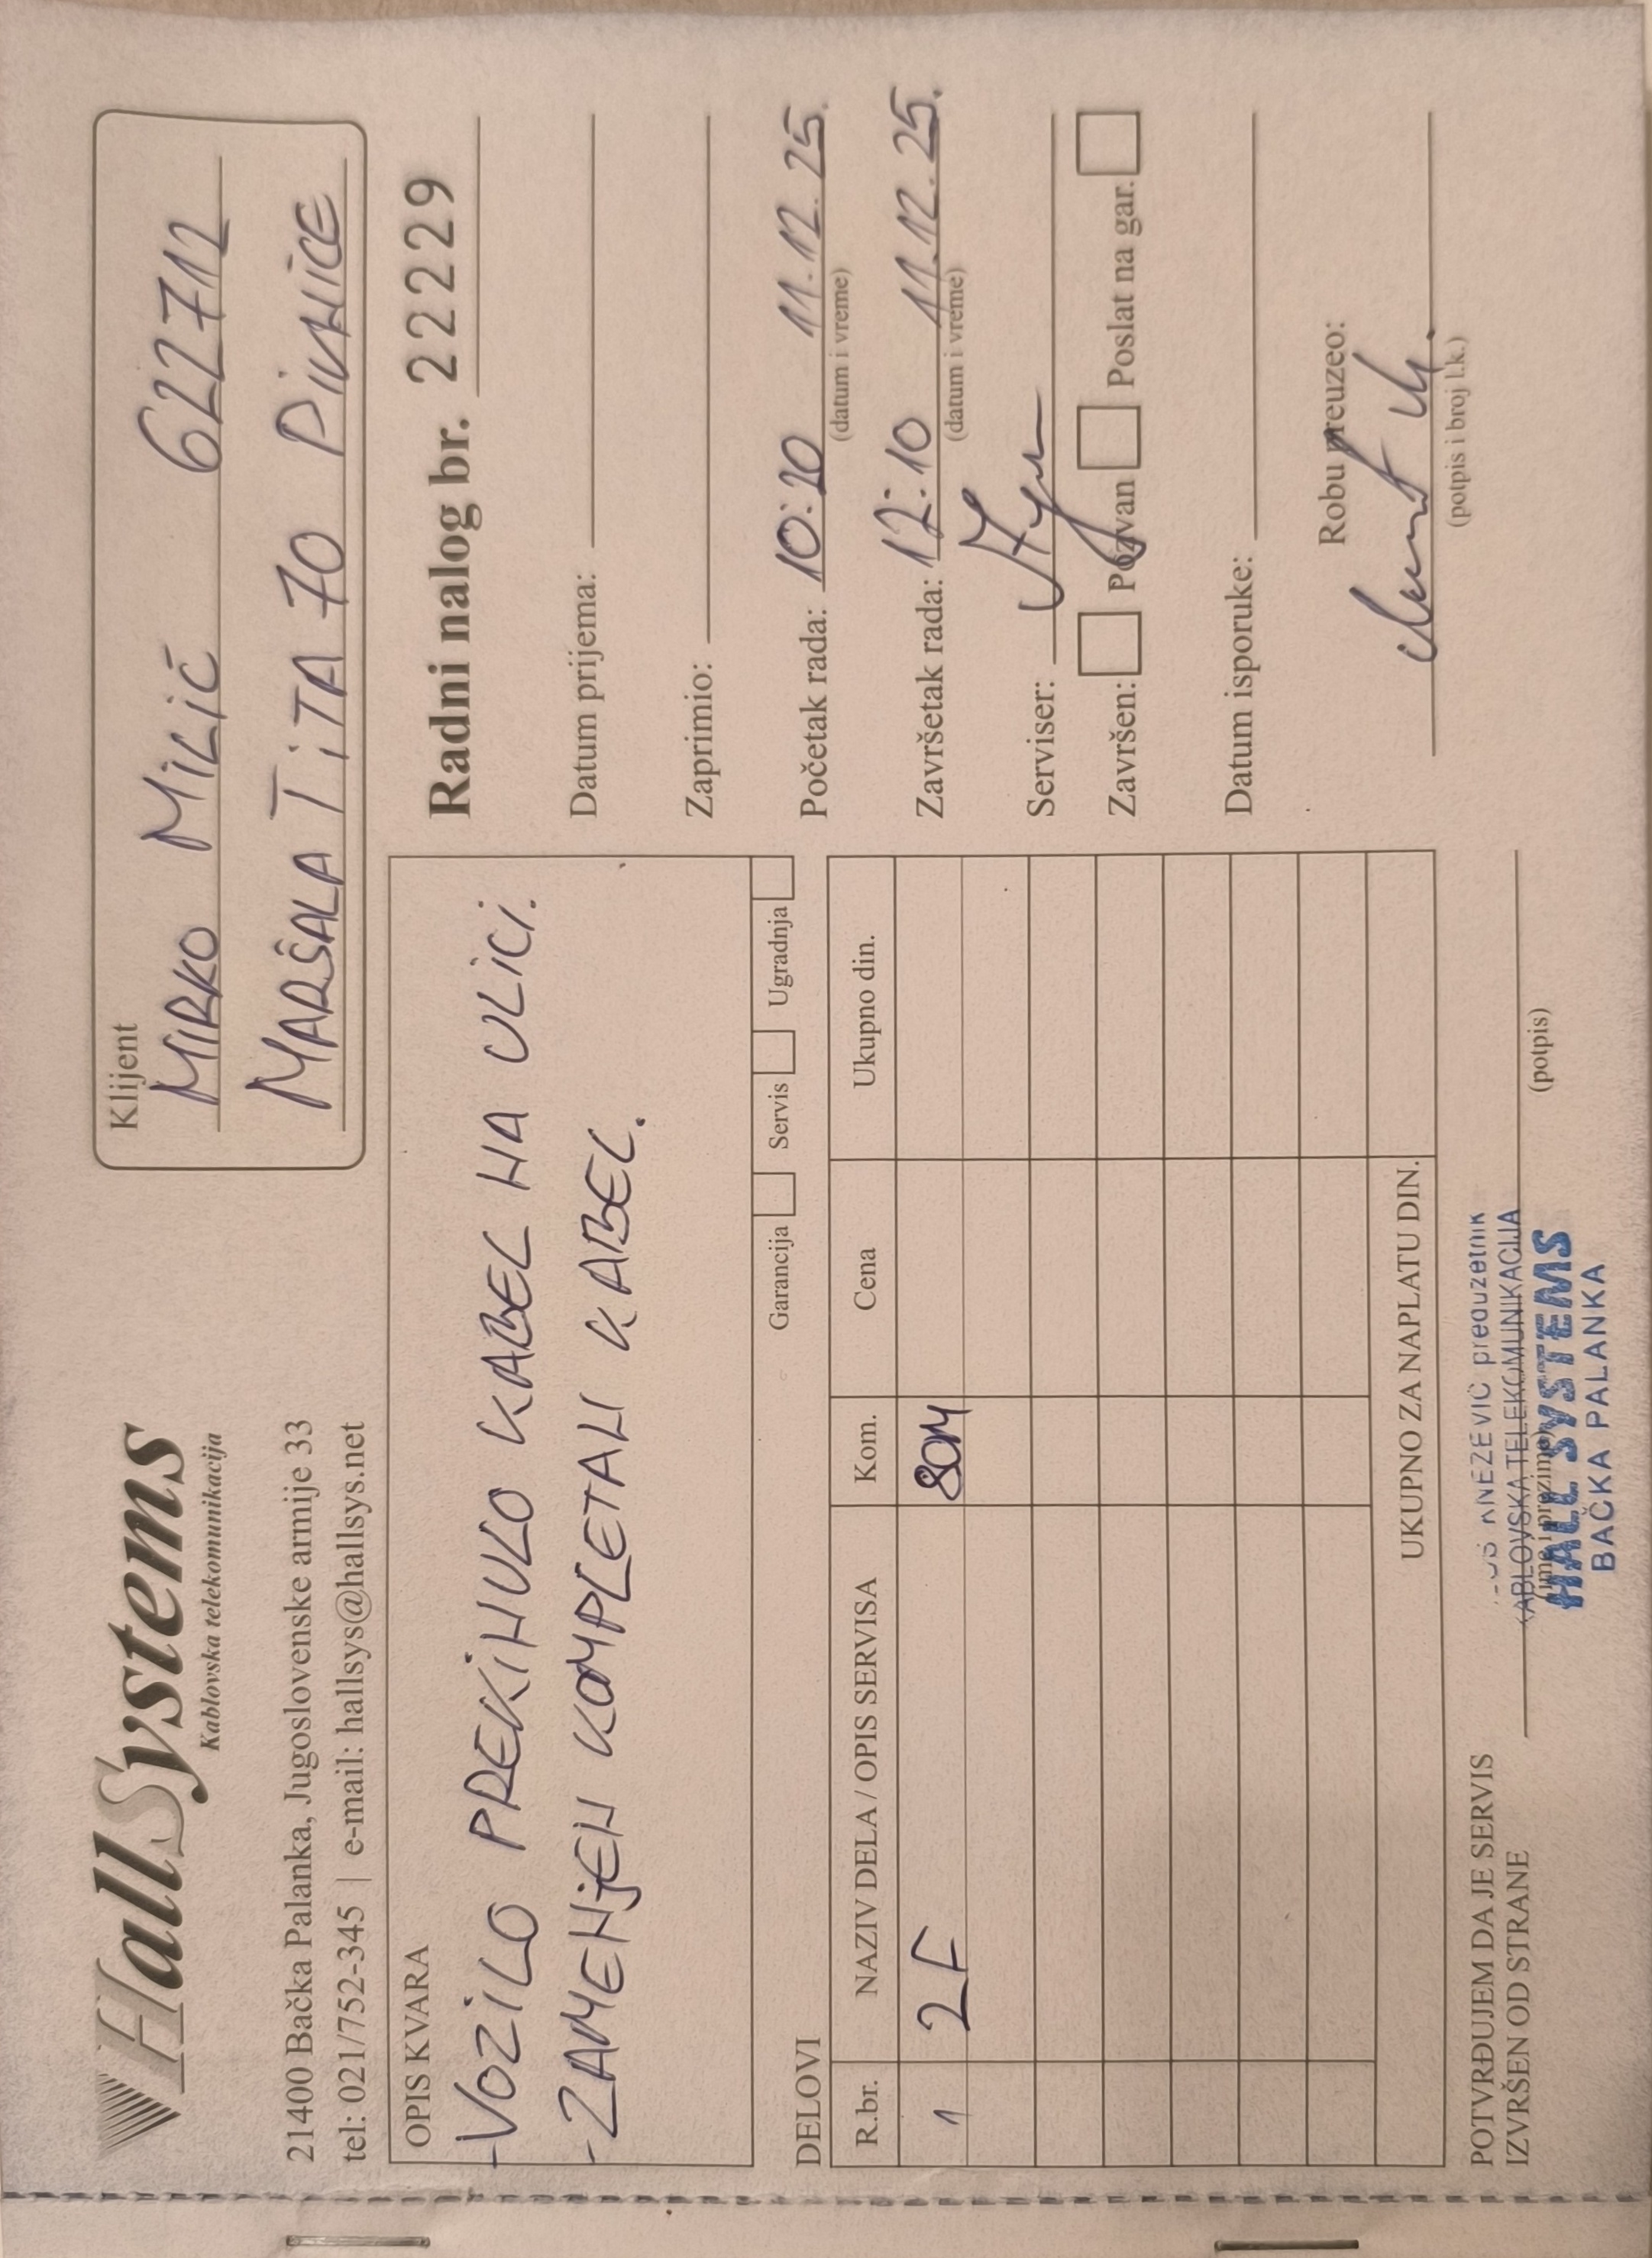 HallSystems
Kablovska telekomunikacija
21400 Bačka Palanka, Jugoslovenske armije 33
tel: 021/752-345 | e-mail: hallsys@hallsys.net
Klijent
MIRKO MILIĆ 622712
MARŠALA TITA 70 PIVNICE
OPIS KVARA
-VOZILO PREKINULO KABEL NA ULICI.
-ZAMENJEN KOMPLETAN KABEL.
Garancija Servis Ugradnja
Radni nalog br. 22229
Datum prijema:
Zaprimio:
Početak rada: 10:20 11.12.25.
(datum i vreme)
Završetak rada: 12:10 11.12.25.
(datum i vreme)
Serviser:
Završen: Pozvan Poslat na gar.
Datum isporuke:
Robu preuzeo:
(potpis i broj l.k.)
DELOVI
R.br. NAZIV DELA / OPIS SERVISA Kom. Cena Ukupno din.
1 2F 80M
UKUPNO ZA NAPLATU DIN.
POTVRĐUJEM DA JE SERVIS
IZVRŠEN OD STRANE
(ime i prezime)
(potpis)
KNEZEVIĆ preduzetnik
KABLOVSKA TELEKOMUNIKACIJA
HALL SYSTEMS
BAČKA PALANKA